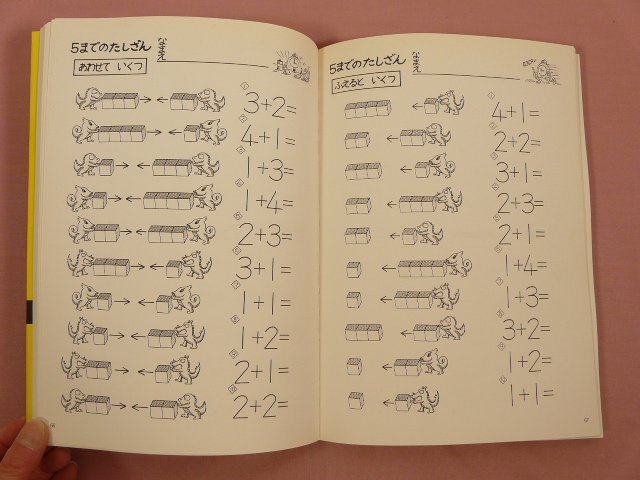 5までのたしざん
なまえ
あわせて いくつ
① 3+2=
② 4+1=
③ 1+3=
④ 1+4=
⑤ 2+3=
⑥ 3+1=
⑦ 1+1=
⑧ 1+2=
⑨ 2+1=
⑩ 2+2=
5までのたしざん
なまえ
ふえると いくつ
① 4+1=
② 2+2=
③ 3+1=
④ 2+3=
⑤ 2+1=
⑥ 1+4=
⑦ 1+3=
⑧ 3+2=
⑨ 1+2=
⑩ 1+1=